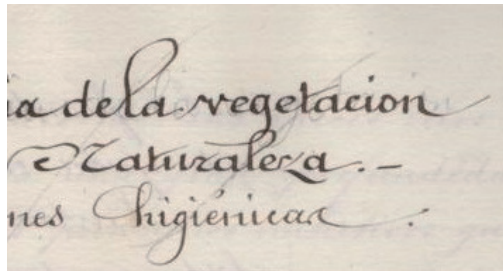 ia de la vegetacion
Naturaleza. –
nes higiénicas.